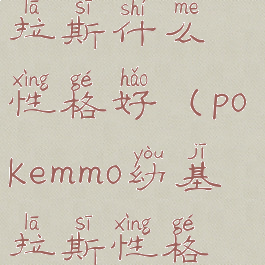 lā sī shí me
拉斯什么
xìng gé hǎo
性格好(po
yòu jī
kemmo幼基
lā sī xìng gé
拉斯性格